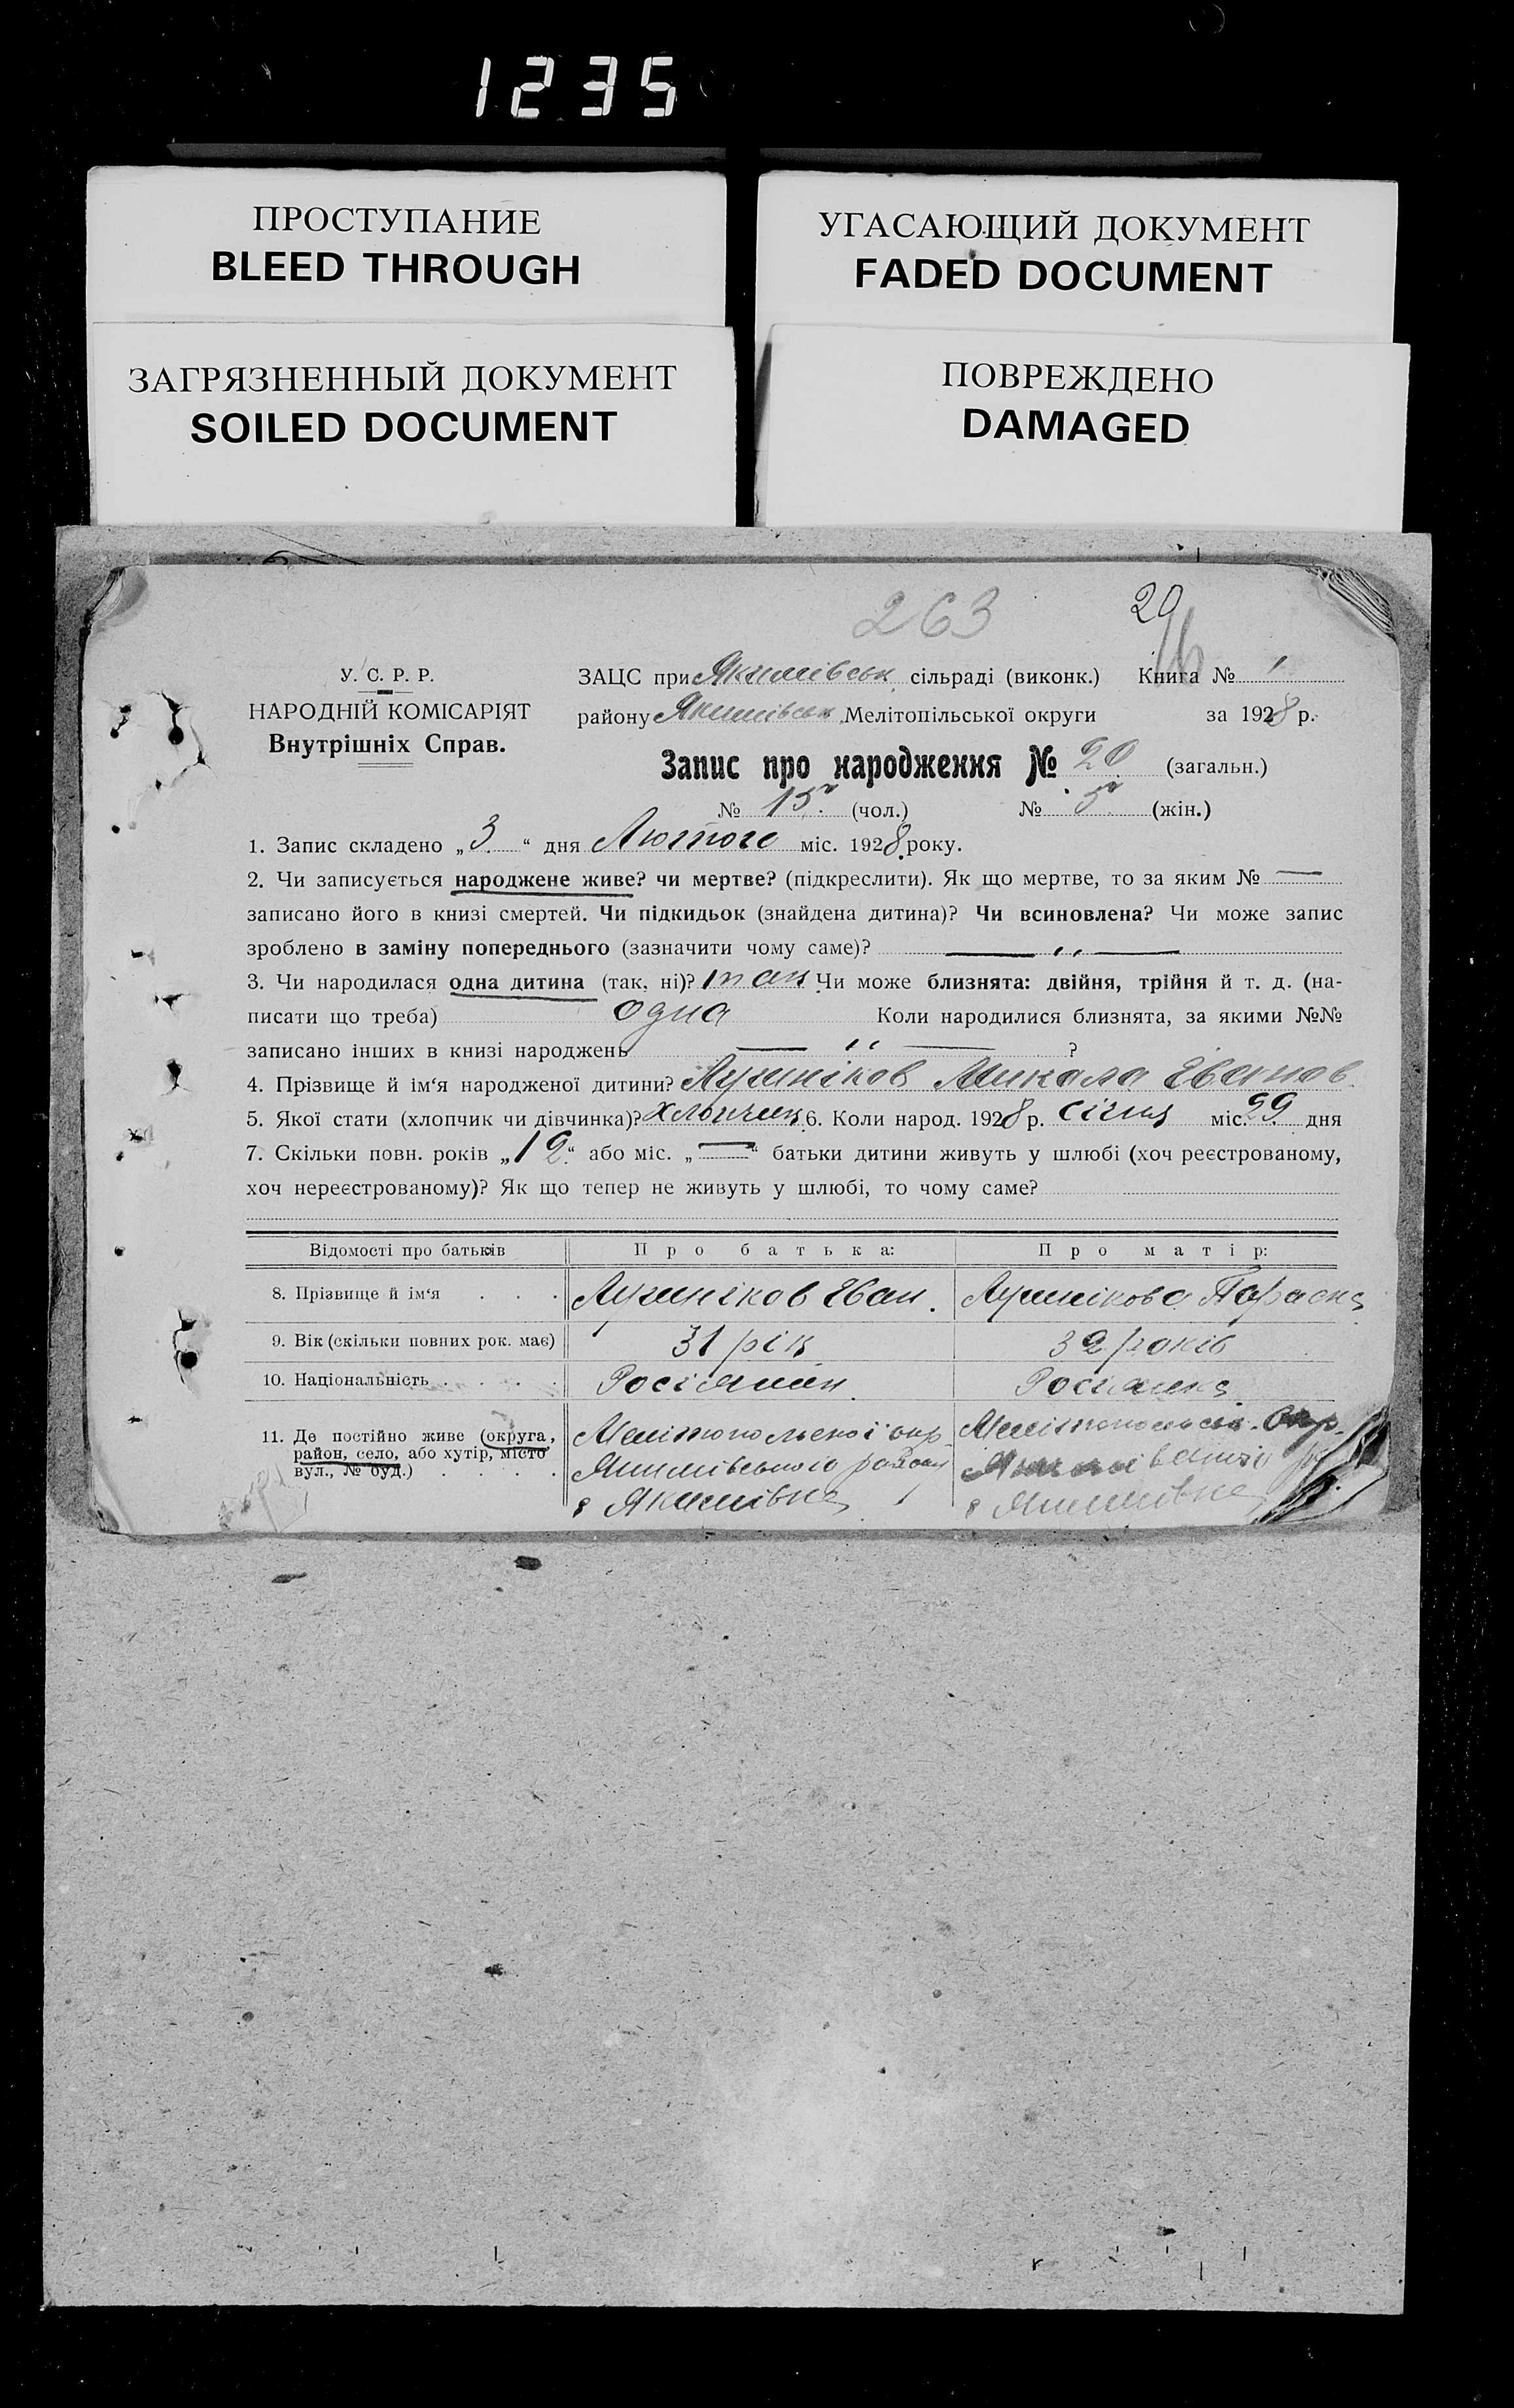 1235
ПРОСТУПАНИЕ
BLEED THROUGH
УГАСАЮЩИЙ ДОКУМЕНТ
FADED DOCUMENT
ЗАГРЯЗНЕННЫЙ ДОКУМЕНТ
SOILED DOCUMENT
ПОВРЕЖДЕНО
DAMAGED
263
20
16
У. С. Р. Р.
НАРОДНІЙ КОМІСАРІЯТ
Внутрішніх Справ.
ЗАЦС при Якимівськ. сільраді (виконк.) Книга № 1
району Якимівськ. Мелітопільської округи за 1928 р.
Запис про народження № 20 (загальн.)
№ 15 (чол.) № 5 (жін.)
1. Запис складено „3“ дня Лютого міс. 1928 року.
2. Чи записується народжене живе? чи мертве? (підкреслити). Як що мертве, то за яким № —
записано його в книзі смертей. Чи підкидьок (знайдена дитина)? Чи всиновлена? Чи може запис
зроблено в заміну попереднього (зазначити чому саме)? — „ —
3. Чи народилася одна дитина (так, ні)? так Чи може близнята: двійня, трійня й т. д. (на-
писати що треба) одна Коли народилися близнята, за якими №№
записано інших в книзі народжень — „ — ?
4. Прізвище й ім‘я народженої дитини? Микола Иванов
5. Якої стати (хлопчик чи дівчинка)? хлопчик 6. Коли народ. 1928 р. січня міс. 29 дня
7. Скільки повн. років „12“ або міс. „—“ батьки дитини живуть у шлюбі (хоч реєстрованому,
хоч нереєстрованому)? Як що тепер не живуть у шлюбі, то чому саме?
Відомості про батьків Про батька: Про матір:
8. Прізвище й ім‘я Иван Параска
9. Вік (скільки повних рок. має) 31 рік 32 років
10. Національність Росіянин Росіянка
11. Де постійно живе (округа,
район, село, або хутір, місто
вул., № буд.)
Мелітопольскої окр.
Якимівського району
с Якимівка
Мелітопольськ. Окр.
с Якимівка